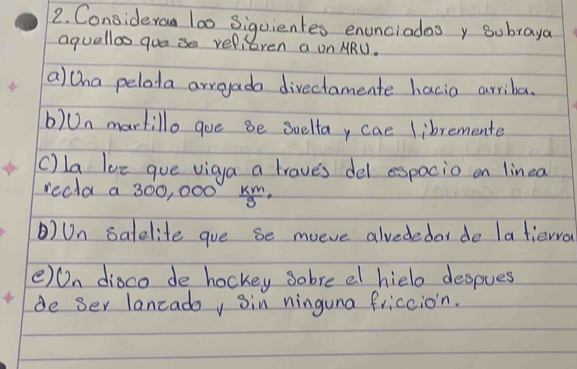 2. Consideran los siguientes enunciados y subraya
aquellos que se refieren a un MRU.
a) Una pelota arrojada directamente hacia arriba.
b) Un martillo que se suelta y cae libremente
c) la luz que viaja a través del espacio en linea
recta a 300,000 km/s.
D) Un satelite que se mueve alrededor de la tierra
e) Un disco de hockey sobre el hielo despues
de ser lanzado y sin ninguna fricción.